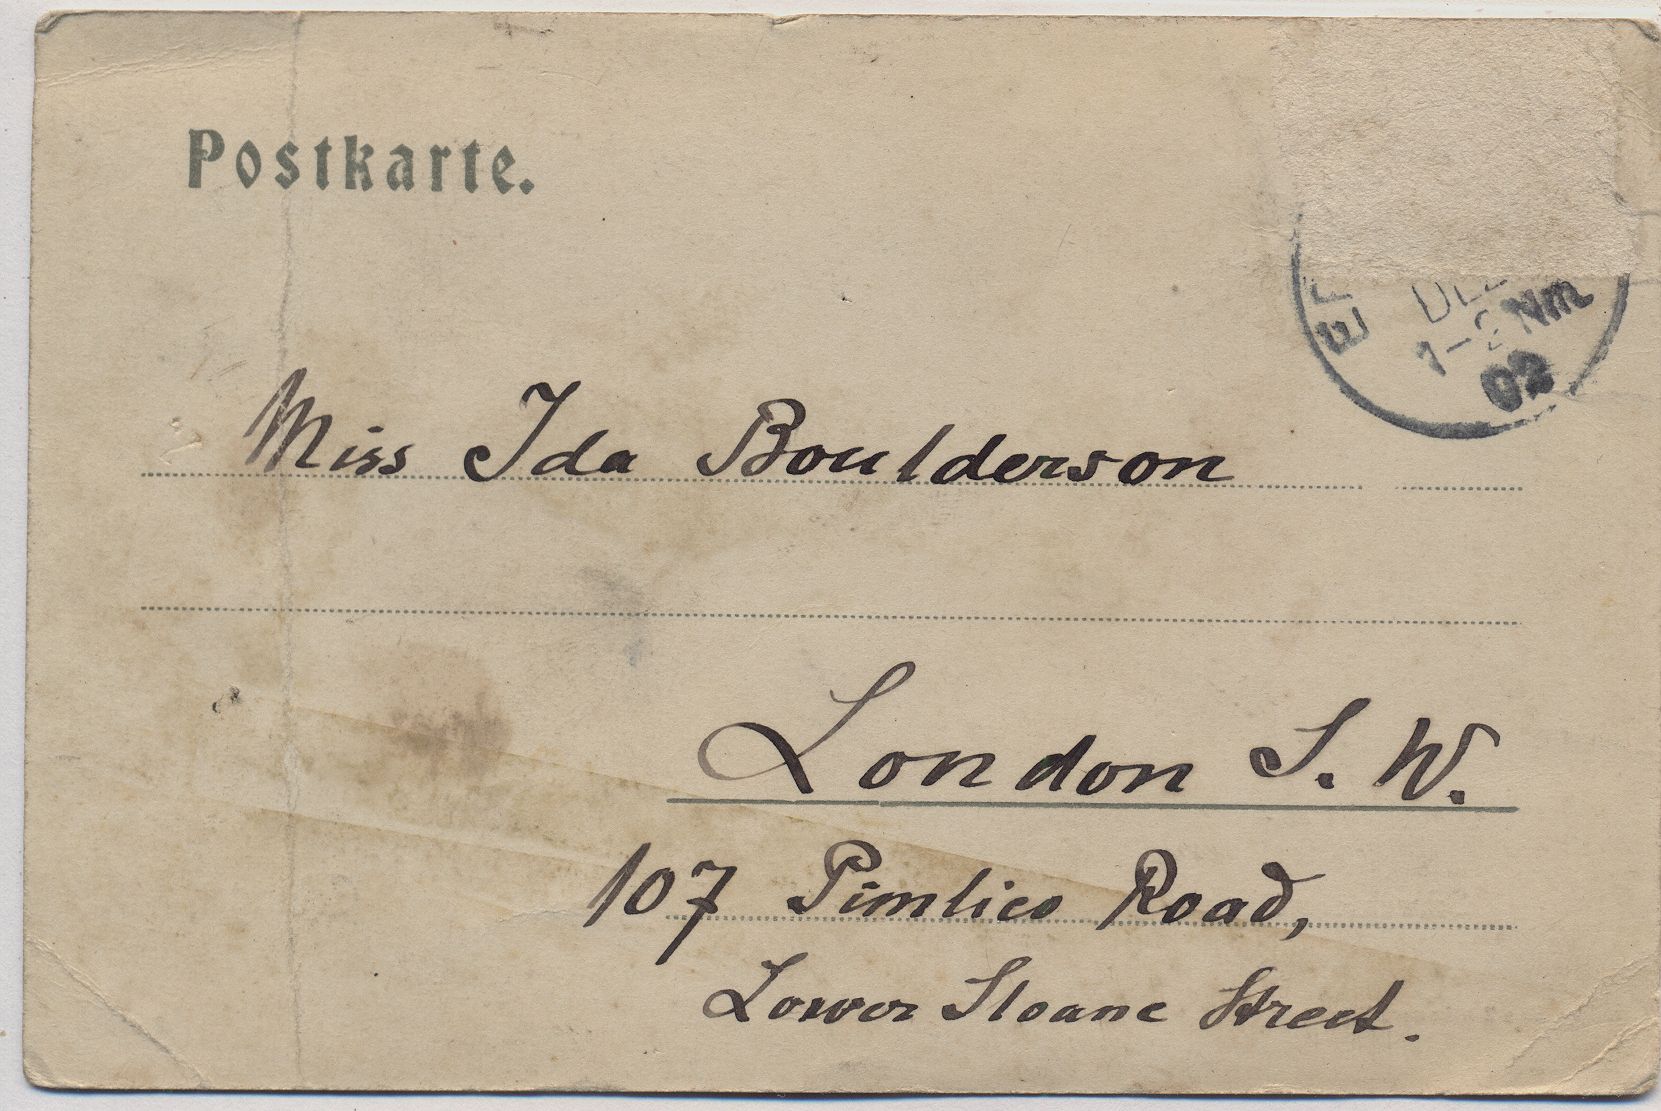 Postkarte.
1-2 Nm
02
Miss Ida Boulderson
London S. W.
107 Pimlico Road,
Lower Sloane Street.